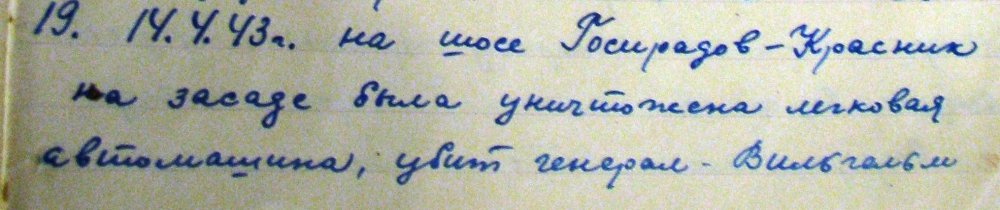 19. 14.4.43г. на шосе Госирадов-Красник
на засаде была уничтожена легковая
автомашина, убит генерал - Вильгельм